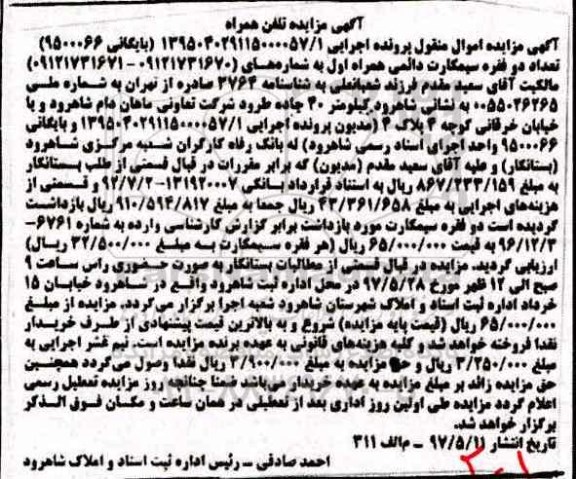 آگهی مزایده تلفن همراه
آگهی مزایده اموال منقول پرونده اجرایی ۱۳۹۵۰۴۰۲۹۱۱۵۰۰۰۰۵۷/۱ (بایگانی ۹۵۰۰۰۶۶)
تعداد دو فقره سیمکارت دائمی همراه اول به شماره‌های (۰۹۱۲۱۷۳۱۶۷۰ – ۰۹۱۲۱۷۳۱۶۷۱)
مالکیت آقای سعید مقدم فرزند شعبانعلی به شناسنامه ۳۷۶۴ صادره از تهران به شماره ملی
۰۰۵۵۰۴۶۲۶۵ به نشانی شاهرود کیلومتر ۴۰ جاده طرود شرکت تعاونی ماهان دام شاهرود و یا
خیابان خرقانی کوچه ۴ پلاک ۴ (مدیون پرونده اجرایی ۱۳۹۵۰۴۰۲۹۱۱۵۰۰۰۰۵۷/۱ و بایگانی
۹۵۰۰۰۶۶ واحد اجرای اسناد رسمی شاهرود) له بانک رفاه کارگران شعبه مرکزی شاهرود
(بستانکار) و علیه آقای سعید مقدم (مدیون) که برابر مقررات در قبال قسمتی از طلب بستانکار
به مبلغ ۸۶۷/۲۳۳/۱۵۹ ریال به استناد قرارداد بانکی ۱۳۱۹۲۰۰۰۷–۹۲/۷/۲ و قسمتی از
هزینه‌های اجرایی به مبلغ ۴۳/۳۶۱/۶۵۸ ریال جمعا به مبلغ ۹۱۰/۵۹۴/۸۱۷ ریال بازداشت
گردیده است دو فقره سیمکارت مورد بازداشت برابر گزارش کارشناسی وارده به شماره ۶۷۶۱–
۹۶/۱۲/۳ به قیمت ۶۵/۰۰۰/۰۰۰ ریال (هر فقره سیمکارت به مبلغ ۳۲/۵۰۰/۰۰۰ ریال)
ارزیابی گردید. مزایده در قبال قسمتی از مطالبات بستانکار به صورت حضوری راس ساعت ۹
صبح الی ۱۲ ظهر مورخ ۹۷/۵/۲۸ در محل اداره ثبت شاهرود واقع در شاهرود خیابان ۱۵
خرداد اداره ثبت اسناد و املاک شهرستان شاهرود شعبه اجرا برگزار می‌گردد. مزایده از مبلغ
۶۵/۰۰۰/۰۰۰ ریال (قیمت پایه مزایده) شروع و به بالاترین قیمت پیشنهادی از طرف خریدار
نقدا فروخته خواهد شد و کلیه هزینه‌های قانونی به عهده برنده مزایده است. نیم عشر اجرایی به
مبلغ ۳/۲۵۰/۰۰۰ ریال و حق مزایده به مبلغ ۳/۹۰۰/۰۰۰ ریال نقدا وصول می‌گردد همچنین
حق مزایده زائد بر مبلغ مزایده به عهده خریدار می‌باشد ضمنا چنانچه روز مزایده تعطیل رسمی
اعلام گردد مزایده طی اولین روز اداری بعد از تعطیلی در همان ساعت و مکان فوق الذکر
برگزار خواهد شد.
تاریخ انتشار ۹۷/۵/۱۱ – م‌الف ۳۱۱
احمد صادقی – رئیس اداره ثبت اسناد و املاک شاهرود